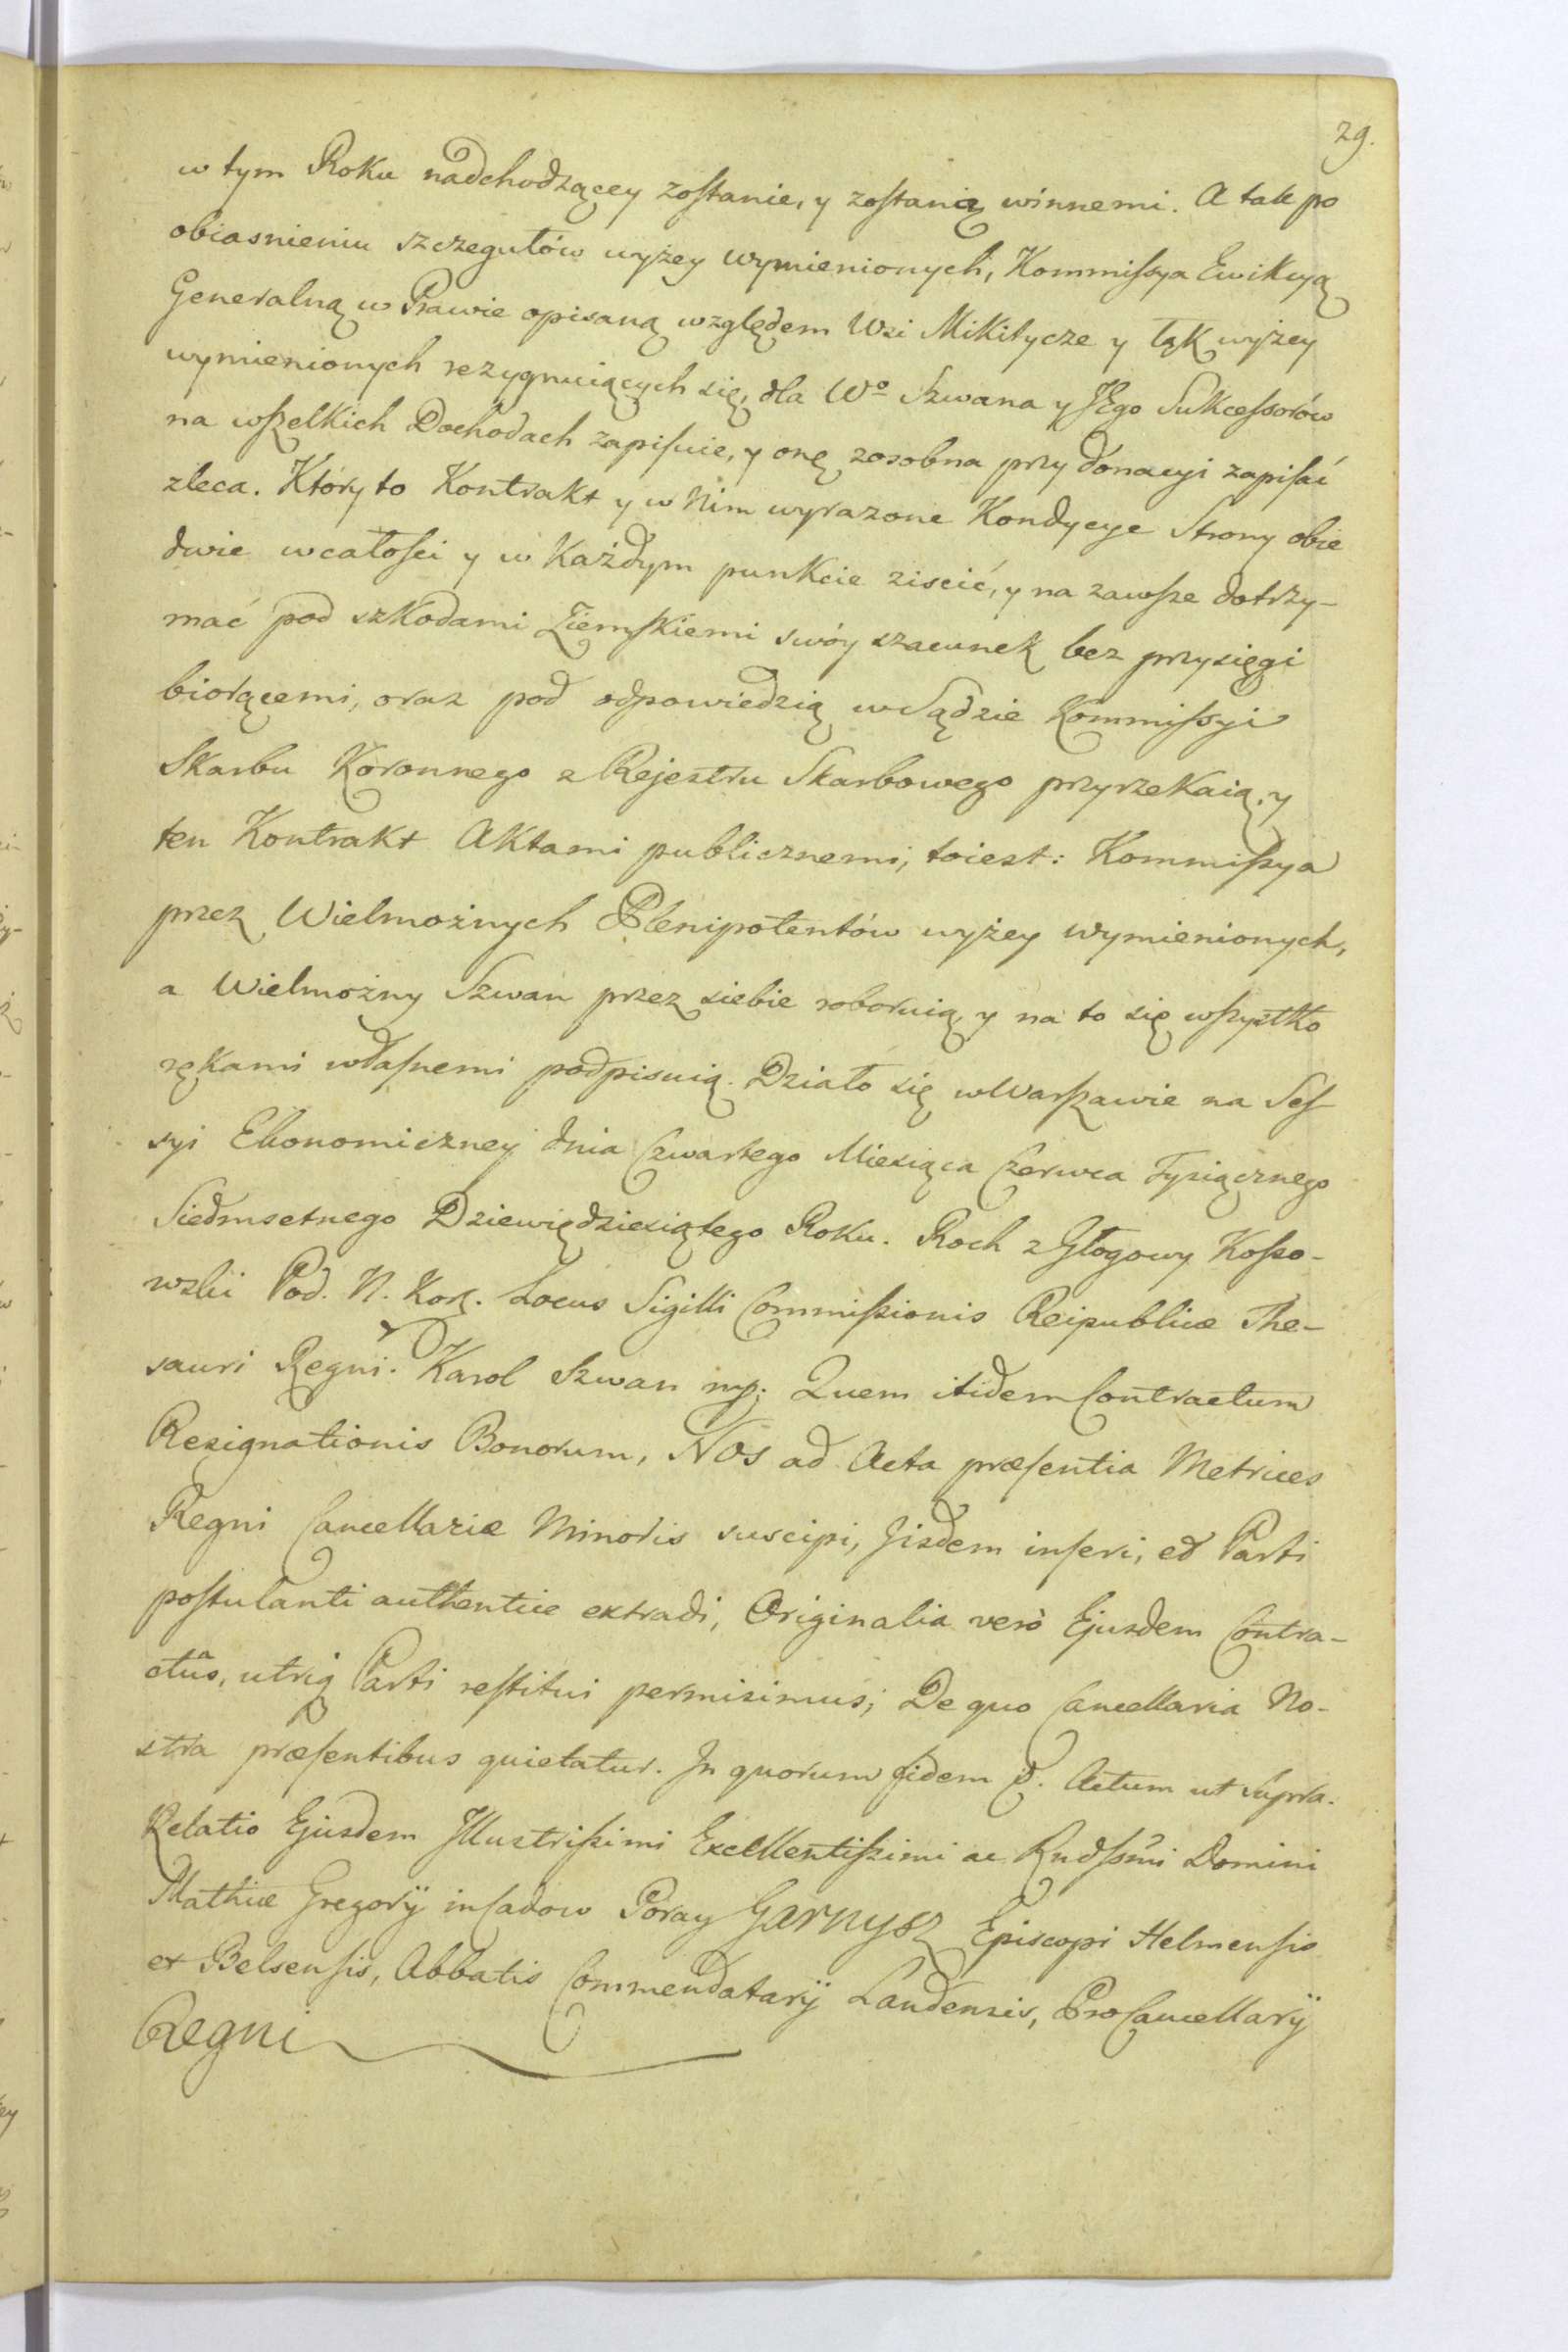 29.
w tym Roku nadchodzącey zostanie, y zostaną winnemi. A tak po
obiasnieniu szczegułów wyżey wymienionych, Kommissya Ewikcyą
Generalną w Prawie opisaną względem Wsi Mikitycze y łąk wyżey
wymienionych rezygnuiących się, dla Wº Szwana y JEgo Sukcessorów
na wszelkich Dochodach zapisuie, y onę zosobna przy donacyi zapisać
zleca. Który to Kontrakt y w Nim wyrazone Kondycye Strony obie
dwie w całości y w Każdym punkcie ziscić, y na zawsze dotrzy-
mać pod szkodami Ziemskiemi swóy szacunek bez przysięgi
biorącemi, oraz pod odpowiedzią w Sądzie Kommissyi
Skarbu Koronnego z Rejestru Skarbowego przyrzekaią, y
ten Kontrakt Aktami publicznemi, toiest: Kommissya
przez Wielmożnych Plenipotentów wyżey wymienionych,
a Wielmożny Szwan przez siebie roboruią, y na to się wszystko
rękami własnemi podpisuią. Działo się w Warszawie na Ses-
syi Ekonomiczney dnia Czwartego Miesiąca Czerwca Tysiącznego
Siedmsetnego Dziewiędziesiątego Roku. Roch z Głogowy Kosso-
wski Pod. N. Kor. Locus Sigilli Commissionis Reipublicæ The-
sauri Regni. Karol Szwan mp. Quem itidem Contractum
Resignationis Bonorum, Nos ad Acta præsentia Metrices
Regni Cancellariæ Minoris suscipi, Jisdem inseri, et Parti
postulanti authentice extradi, Originalia verò Ejusdem Contra-
ctûs, utriq Parti restitui permisimus; De quo Cancellaria No-
stra præsentibus quietatur. In quorum fidem &. Actum ut supra.
Relatio Ejusdem Illustrissimi Excellentissimi ac Rndssmi Domini
Mathiæ Gregorÿ in Cadow Poray Garnysz Episcopi Helmensis
et Belsensis, Abbatis Commendatarÿ Landensis, ProCancellarÿ
Regni